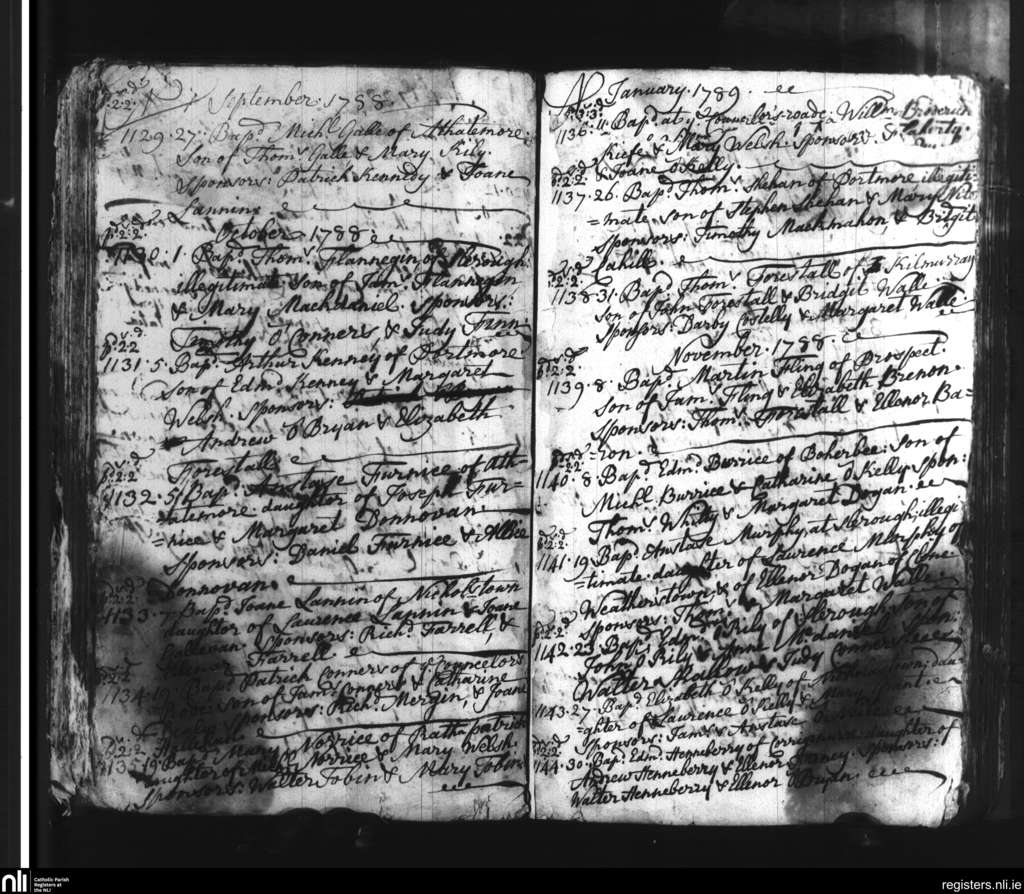 September 1788
1129. 27. Bapd. Michl. Galle of Athatemore
Son of Thoms. Galle & Mary Kily.
Sponsors: Patrick Kennedy & Joane
Lannin
October 1788
1130. 1. Bapd. Thoms. Flannegin of Slerough
illegitimate Son of Jams. Flannegin
& Mary Mackdaniel. Sponsors:
Timothy O'Conners & Judy Finn
1131. 5. Bapd. Arthur Kenney of Portmore
Son of Edmd. Kenney & Margaret
Welsh. Sponsors:
Andrew O'Bryan & Elizabeth
Forestall
1132. 5. Bapd. Anstase Furnice of Ath
=atemore daughter of Joseph Fur=
=nice & Margaret Donnovan
Sponsors: Daniel Furnice & Allice
Donnovan
1133. Bapd. Joane Lannin of Nicholstown
daughter of Laurence Lannin & Joane
Sullevan Sponsors: Richd. Farrell, &
Farrell
1134. 19. Bapd. Patrick Conners of ye Councelors
roade son of Jams. Conners & Catharine
Sponsors: Richd. Mergin, & Joane
1135. 19. Bapd. Mary Norrice of Rathapatrick
daughter of Norrice & Mary Welsh.
Sponsors: Walter Tobin & Mary Tobin
January 1789
1136. 11. Bapd. at ye Councelor's roade Willm. Broderick
Kiefe & Mary Welsh. Sponsors:
& Joane O'Kelly.
1137. 26. Bapd. Thoms. Shehan of Portmore illegiti-
=mate son of Stephen Shehan & Mary
Sponsors: Timothy Mackmahon, & Bridgit
Cahill
1138. 31. Bapd. Thoms. Forestall of Kilmurray
son of John Forestall & Bridgit Walle
Sponsors: Darby Costelly & Margaret Walle
November 1788
1139. 8. Bapd. Martin Fling of Prospect.
son of Jams. Fling & Elizabeth Brenon
Sponsors: Thoms. Forestall & Ellenor Ba=
=ron
1140. 8. Bapd. Edmd. Burrice of Boherbee: Son of
Michl. Burrice & Catharine O'Kelly Spon:
Thoms. Whitty & Margaret Dogan
1141. 19. Bapd. Anstase Murphy, at Slerough, illegi
=timate daughter of Laurence Murphy of
Weatherstown & of Ellenor Dogan of Clone
Sponsors: Thoms. Margaret Walle
1142. 23. Bapd. Edmd. O'Kily of Slerough, son of
John O'Kily & Anne McDaniel Spon:
Walter Shallow & Judy Conners
1143. 27. Bapd. Elizabeth O'Kelly of Nicholstown, dau-
=ghter of Laurence O'Kelly & Mary Grant
Sponsors: Jams. & Anstase
1144. 30. Bapd. Edmd. Henneberry of daughter of
Andrew Henneberry & Ellenor Barney. Sponsors:
Walter Henneberry & Ellenor O'Bryan
nli
Catholic Parish
Registers at
the NLI
registers.nli.ie